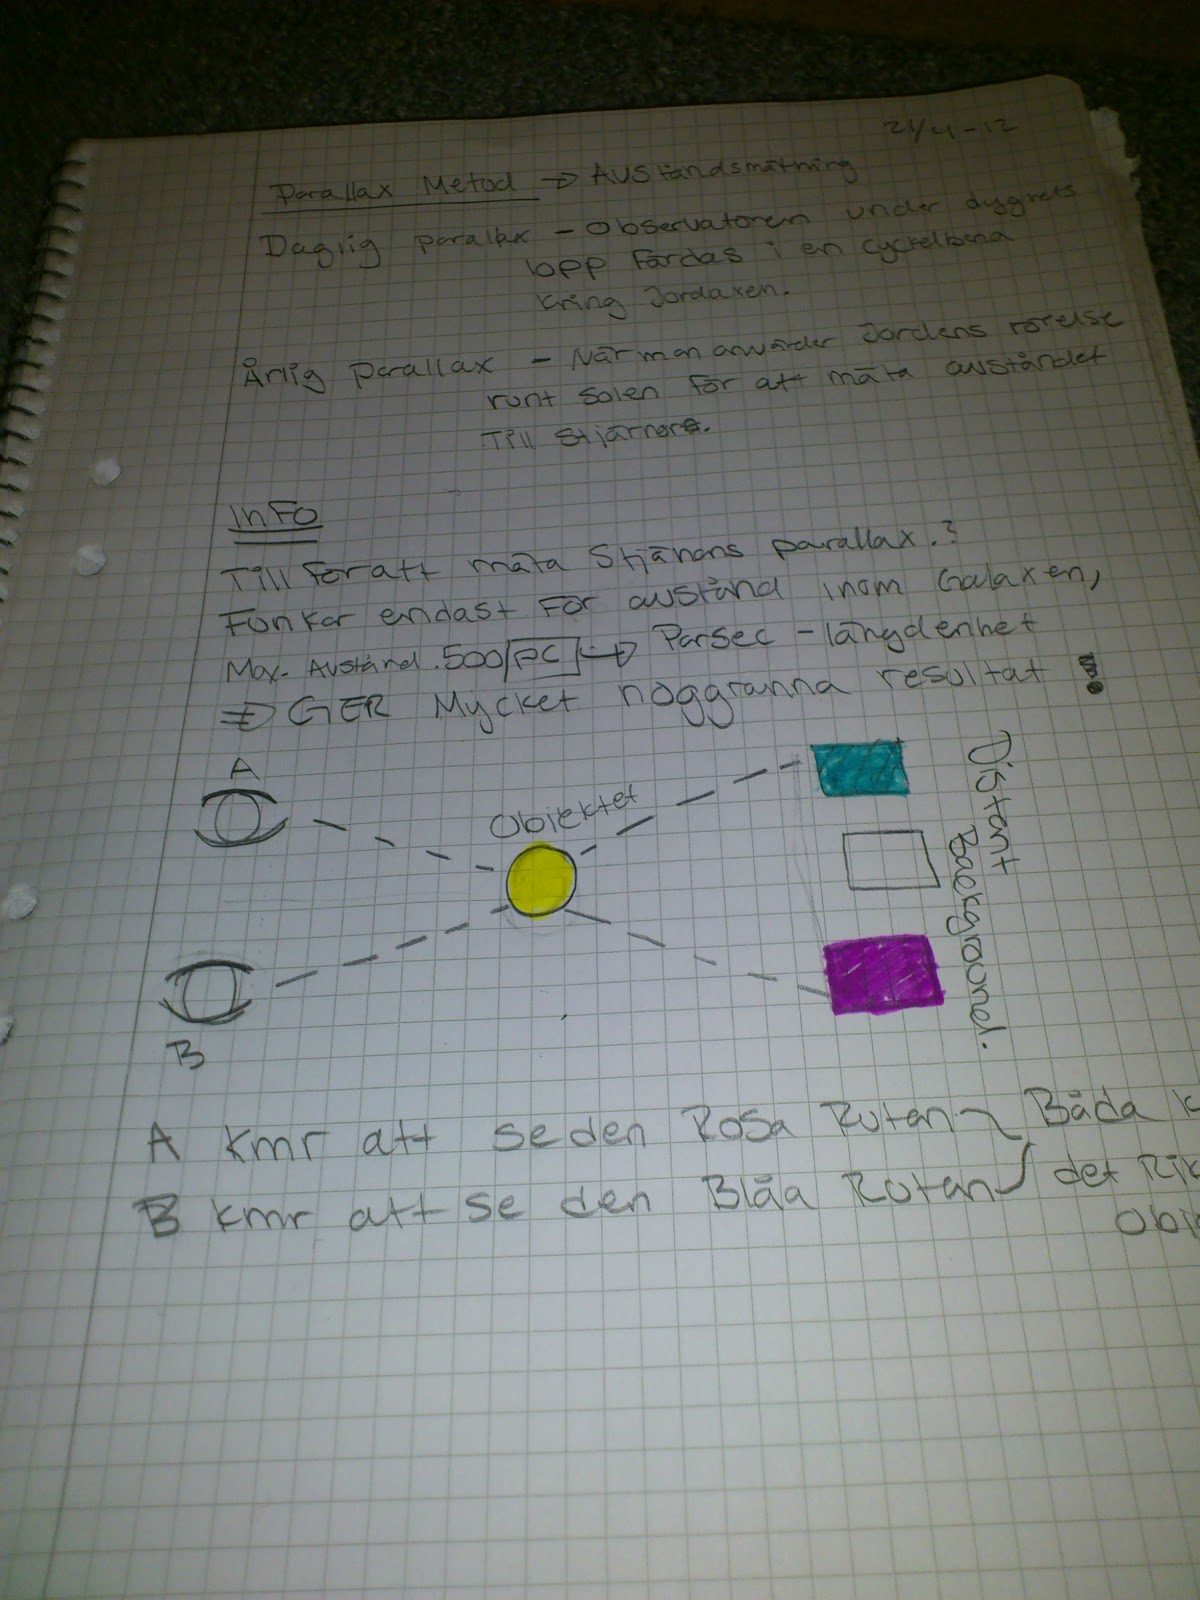 21/4-12
Parallax Metod → Avståndsmätning
Daglig parallax - Observatoren under dygnets
lopp färdas i en cyckelbana
kring Jordaxen.
Årlig parallax - När man använder Jordens rörelse
runt solen för att mäta avståndet
Till stjärnor.
Info
Till för att mäta Stjänans parallax.?
Funkar endast för avstånd inom Galaxen,
Max. Avstånd. 500 PC → Parsec - längdenhet
⇒ GER Mycket noggranna resultat !
A
Objektet
Distant
Background.
B
A kmr att se den Rosa Rutan Båda
B kmr att se den Blåa Rutan det